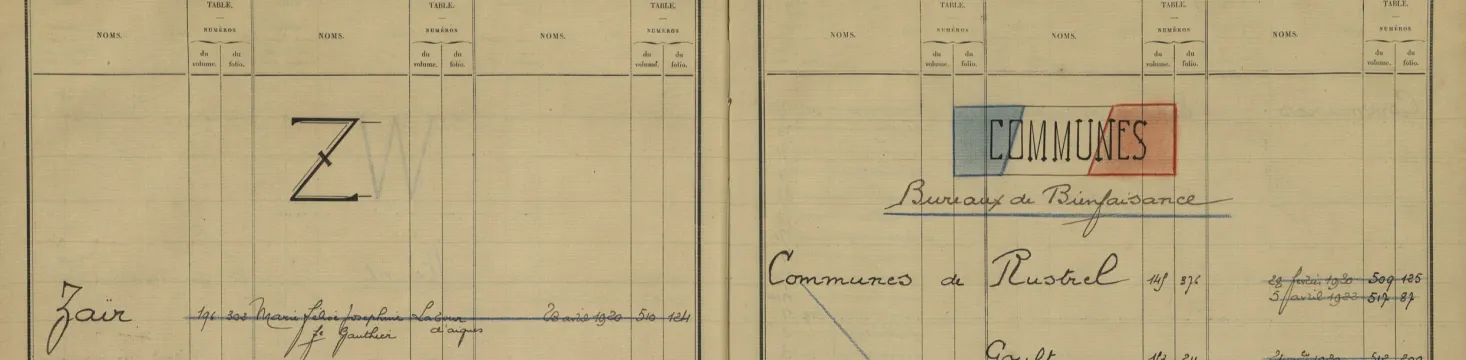 TABLE. TABLE. TABLE.
NOMS. NUMÉROS NOMS. NUMÉROS NOMS. NUMÉROS
du volume. du folio. du volume. du folio. du volume. du folio.
Z W
Zaïr 196 303 Marie Joséphine Labour 510 124
fe Gauthier d'aigues
TABLE. TABLE. TABLE.
NOMS. NUMÉROS NOMS. NUMÉROS NOMS. NUMÉROS
du volume. du folio. du volume. du folio. du volume. du folio.
COMMUNES
Bureaux de Bienfaisance
Communes de Rustrel 145 376 509 125
5 avril 1922 517 87
Gault